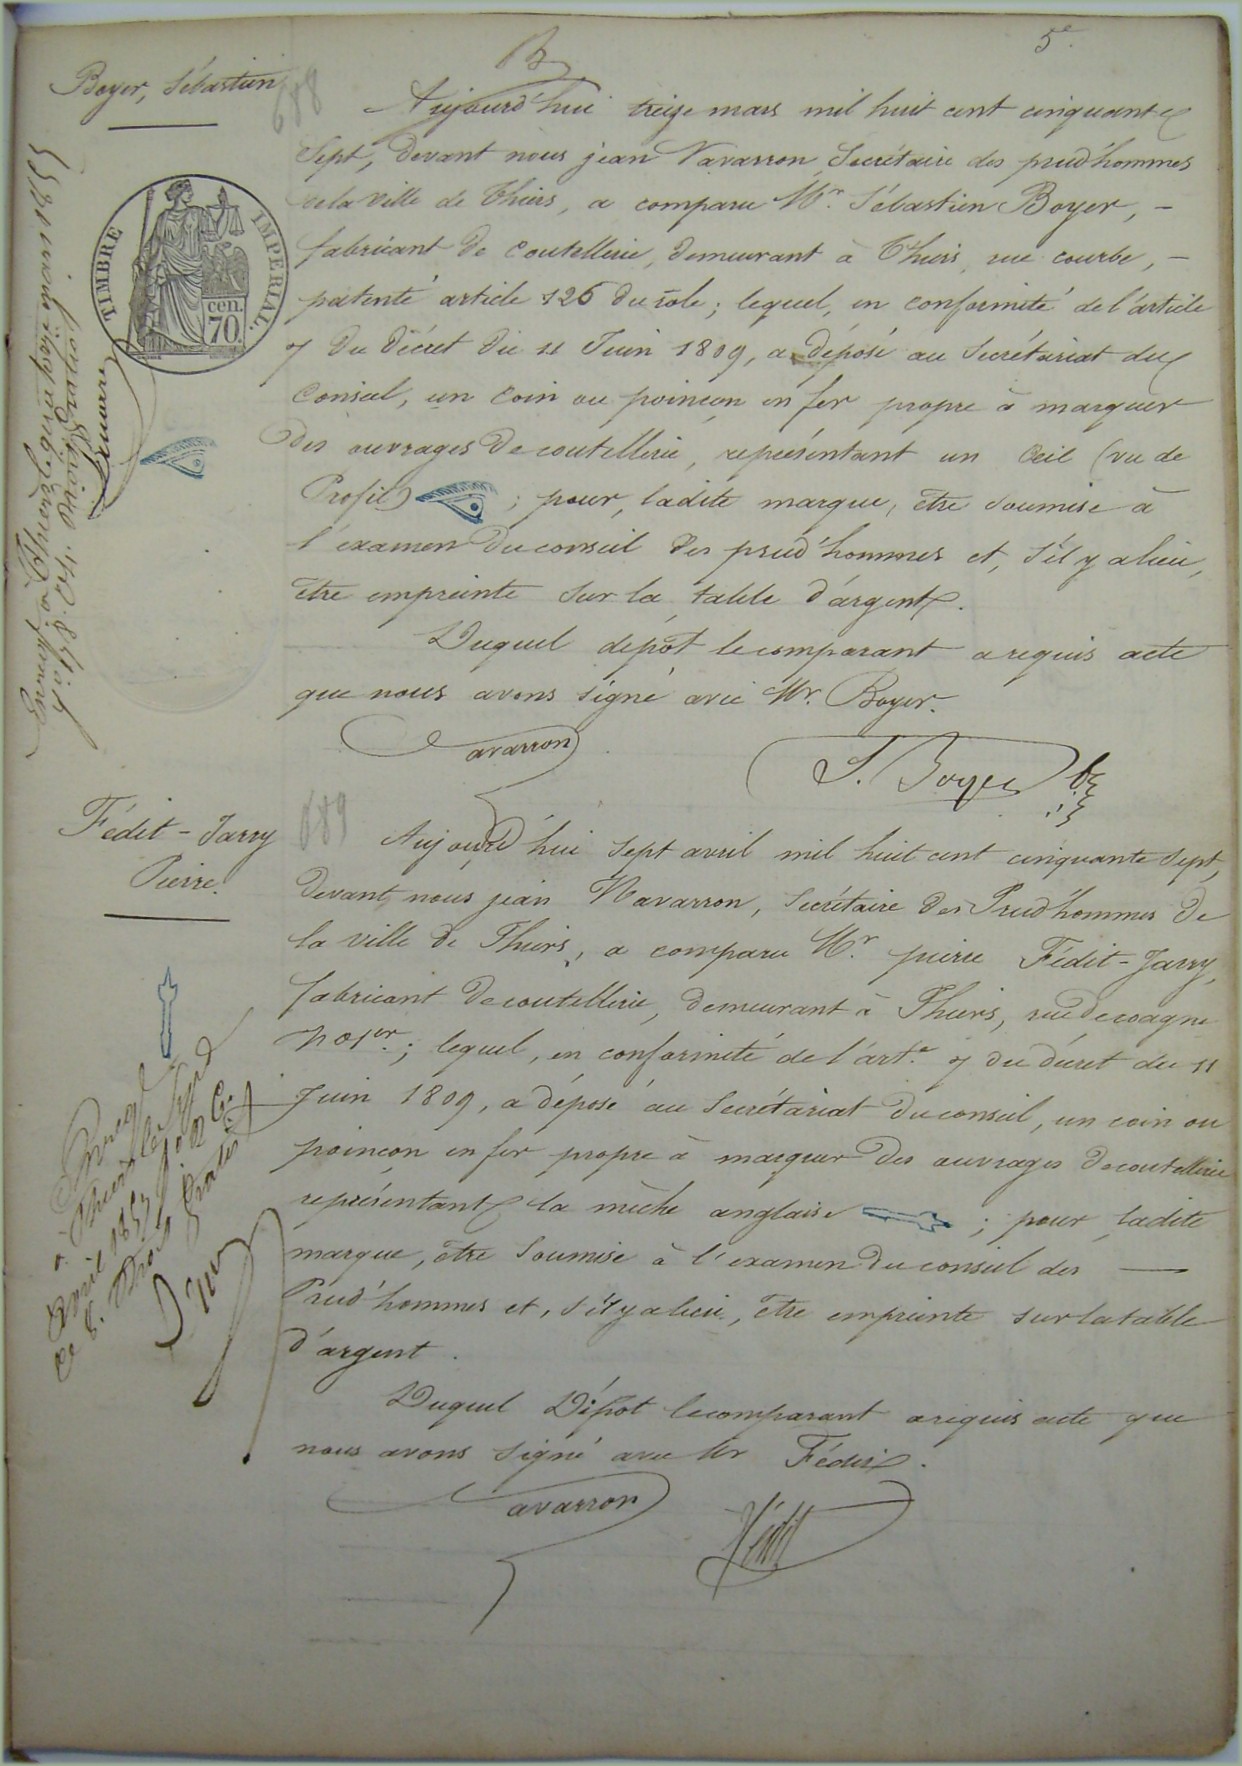 5e.
Boyer, Sébastien
688
Aujourd'hui treize mars mil huit cent cinquante
Sept, devant nous jean Navarron Secrétaire des prud'hommes
de la Ville de Thiers, a comparu Mr. Sébastien Boyer, -
fabricant de Coutellerie, demeurant à Thiers, rue courbe, -
patenté article 126 du rôle; lequel, en conformité de l'article
7 du Décret du 11 Juin 1809, a déposé au Secrétariat du
Conseil, un Coin ou poinçon en fer propre à marquer
des ouvrages de coutellerie, représentant un Œil (vu de
Profil) ; pour, ladite marque, être soumise à
l'examen du conseil des prud'hommes et, s'il y a lieu,
être empreinte sur la table d'argent.
Duquel dépôt le comparant a requis acte
que nous avons signé avec Mr. Boyer.
Navarron
S. Boyer
TIMBRE IMPÉRIAL.
cen. 70.
Fédit - Jarry
Pierre.
689
Aujourd'hui Sept avril mil huit cent cinquante sept,
devant nous jean Navarron, Secrétaire des Prud'hommes de
la ville de Thiers, a comparu Mr. pierre Fédit-Jarry,
fabricant de coutellerie, demeurant à Thiers, rue
no 1er.; lequel, en conformité de l'art.e 7 du décret du 11
Juin 1809, a déposé au Secrétariat du conseil, un coin ou
poinçon en fer propre à marquer des ouvrages de coutellerie
représentant la mèche anglaise ; pour ladite
marque, être soumise à l'examen du conseil des
Prud'hommes et, s'il y a lieu, être empreinte sur la table
d'argent.
Duquel Dépôt le comparant a requis acte que
nous avons signé avec Mr Fédit.
Navarron
Fédit